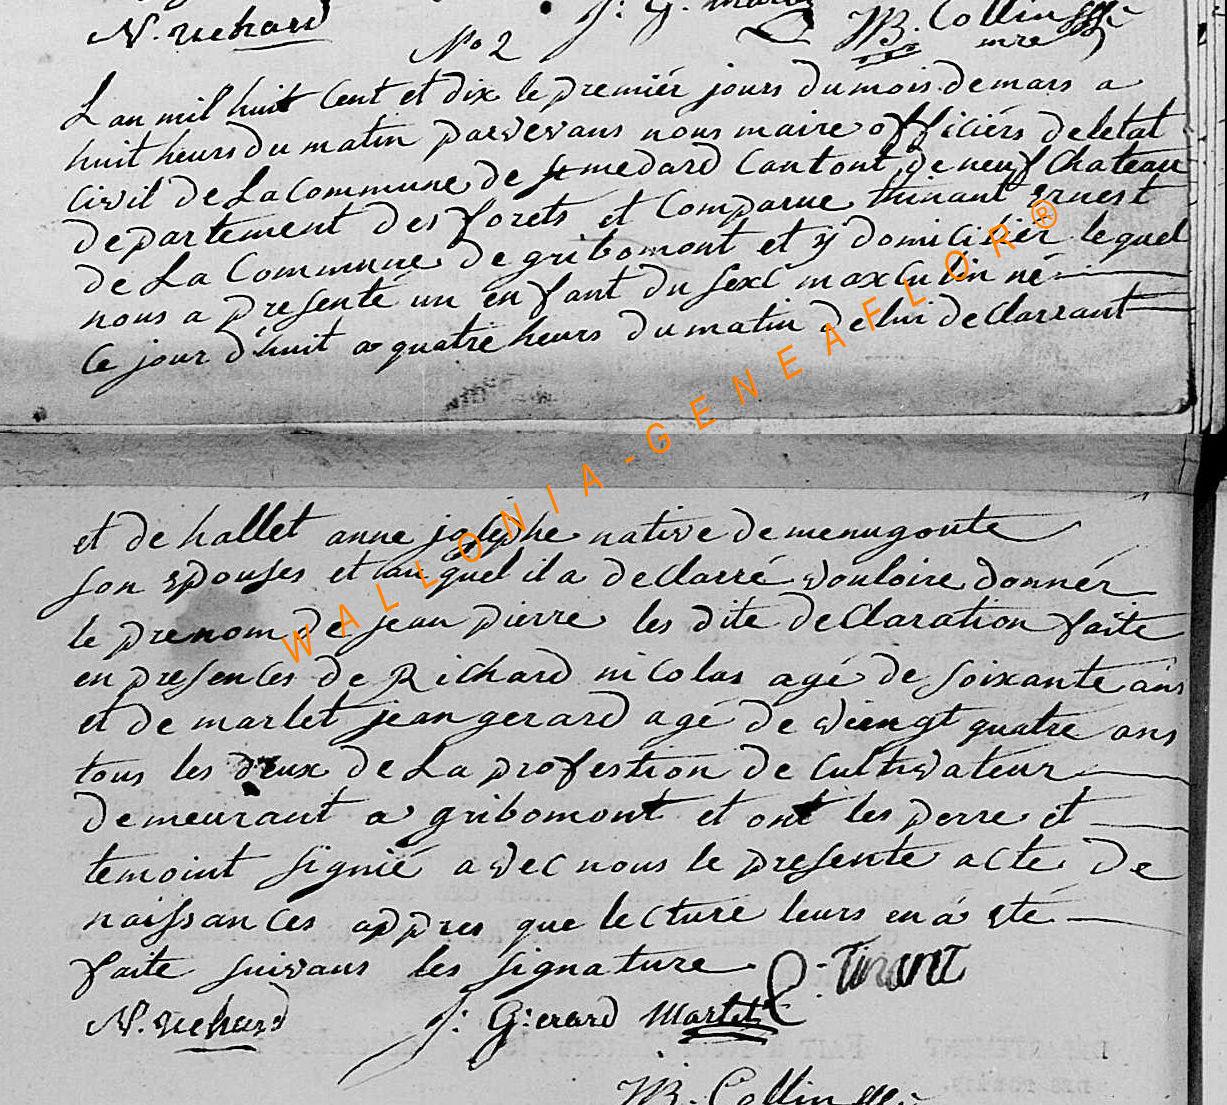 N. richard J: G. mar
JB. Collin
mre
No 2
L an mil huit Cent et dix le premiér jours du mois de mars a
huit heurs du matin pardevans nous maire officiérs de letat
Civil de La Commune de st medard Cantont de neuf Chateau
departement des forets et Comparue thinant Ernest
de La Commune de gribomont et ÿ domiciliér lequel
nous a presenté un enfant du sexe maxculin né
Ce jour d'huit a quatre heurs du matin de lui declarrant
et de hallet anne josephe native de menugoute
son epouses et auquel il a declarré vouloire donnér
le prenom de jean pierre les dite declaration faite
en presences de Richard nicolas agé de soixante ans
et de marlet jean gerard agé de vieingt quatre ans
tous les deux de La profestion de Cultivateur
demeurant a gribomont et ont les perre et
temoint signié avec nous le presente acte de
naissances appres que lecture leurs en á eté
faite suivans les signature E. Tinant
N. richard J: G:erard Marlet
JB. Collin
WALLONIA-GENEAFLOR®